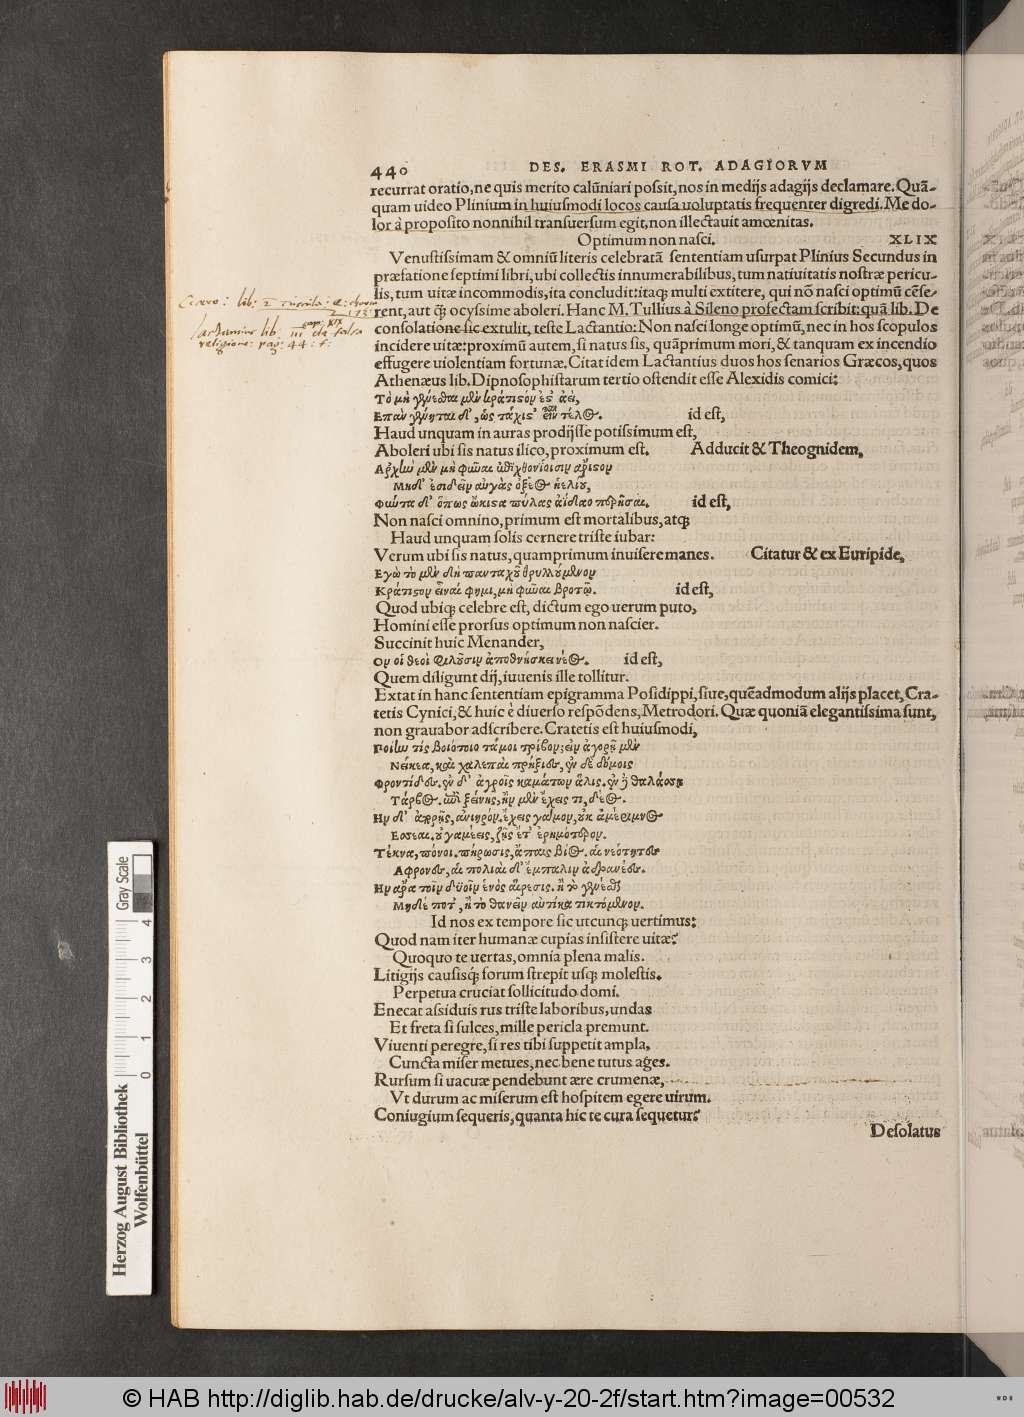 440 DES. ERASMI ROT. ADAGIORVM
recurrat oratio, ne quis merito calũniari possit, nos in medijs adagijs declamare. Quã-
quam uideo Plinium in huiusmodi locos causa uoluptatis frequenter digredi. Me do-
lor à proposito nonnihil transuersum egit, non illectauit amœnitas.
Optimum non nasci. XLIX
Venustissimam & omniũ literis celebratã sententiam usurpat Plinius Secundus in
præfatione septimi libri, ubi collectis innumerabilibus, tum natiuitatis nostræ pericu-
lis, tum uitæ incommodis, ita concludit: itaq; multi extitere, qui nõ nasci optimũ cẽse-
rent, aut q̃ ocyssime aboleri. Hanc M. Tullius à Sileno profectam scribit: quã lib. De
consolatione sic extulit, teste Lactantio: Non nasci longe optimũ, nec in hos scopulos
incidere uitæ: proximũ autem, si natus sis, quãprimum mori, & tanquam ex incendio
effugere uiolentiam fortunæ. Citat idem Lactantius duos hos senarios Græcos, quos
Athenæus lib. Dipnosophistarum tertio ostendit esse Alexidis comici:
Τὸ μὴ γενέσθαι μὲν κράτιστόν ἐστ' ἀεί,
Επὰν γένηται δ', ὡς τάχιστ' ἔχειν τέλος. id est,
Haud unquam in auras prodijsse potissimum est,
Aboleri ubi sis natus ilico, proximum est. Adducit & Theognidem,
Αρχὴν μὲν μὴ φῦναι ἐπιχθονίοισιν ἄριστον
Μηδ' ἐσιδεῖν αὐγὰς ὀξέος ἠελίου,
Φύντα δ' ὅπως ὤκιστα πύλας ἀΐδαο περῆσαι. id est,
Non nasci omnino, primum est mortalibus, atq;
Haud unquam solis cernere triste iubar:
Verum ubi sis natus, quamprimum inuisere manes. Citatur & ex Euripide,
Εγὼ τὸ μὲν δὴ πανταχοῦ θρυλλούμενον
Κράτιστον εἶναί φημι, μὴ φῦναι βροτῷ. id est,
Quod ubiq; celebre est, dictum ego uerum puto,
Homini esse prorsus optimum non nascier.
Succinit huic Menander,
Ον οἱ θεοὶ φιλοῦσιν ἀποθνήσκει νέος. id est,
Quem diligunt dij, iuuenis ille tollitur.
Extat in hanc sententiam epigramma Posidippi, siue, quẽadmodum alijs placet, Cra-
tetis Cynici, & huic è diuerso respõdens, Metrodori. Quæ quoniã elegantissima sunt,
non grauabor adscribere. Cratetis est huiusmodi,
Ποίην τίς βιότοιο τάμοι τρίβον; εἰν ἀγορῇ μὲν
Νείκεα, καὶ χαλεπαὶ πρήξιες, ἐν δὲ δόμοις
Φροντίδες. ἐν δ' ἀγροῖς καμάτων ἅλις. ἐν δὲ θαλάσσῃ
Τάρβος. ἐπὶ ξείνης, ἢν μὲν ἔχεις τι, δέος.
Ην δ' ἀπορῇς, ἀνιηρόν. ἔχεις γάμον, οὐκ ἀμέριμνος
Εσσεαι. οὐ γαμέεις, ζῇς ἔτ' ἐρημότερον.
Τέκνα, πόνοι. πήρωσις, ἄπαις βίος. αἱ νεότητες
Αφρονες, αἱ πολιαὶ δ' ἔμπαλιν ἀδρανέες.
Ην ἄρα τοῖν δυοῖν ἑνὸς αἵρεσις. ἢ τὸ γενέσθαι
Μηδέ ποτ', ἢ τὸ θανεῖν αὐτίκα τικτόμενον.
Id nos ex tempore sic utcunq; uertimus:
Quod nam iter humanæ cupias insistere uitæ?
Quoquo te uertas, omnia plena malis.
Litigijs causisq; forum strepit usq; molestis.
Perpetua cruciat sollicitudo domi.
Enecat assiduis rus triste laboribus, undas
Et freta si sulces, mille pericla premunt.
Viuenti peregre, si res tibi suppetit ampla,
Cuncta miser metues, nec bene tutus ages.
Rursum si uacuæ pendebunt ære crumenæ,
Vt durum ac miserum est hospitem egere uirum.
Coniugium sequeris, quanta hic te cura sequetur?
Desolatus
Cicero: lib:
Lactantius lib. iii de falsa
cap: XIX
religione: pag: 44: f:
Gray Scale
0 1 2 3 4
Herzog August Bibliothek
Wolfenbüttel
© HAB http://diglib.hab.de/drucke/alv-y-20-2f/start.htm?image=00532